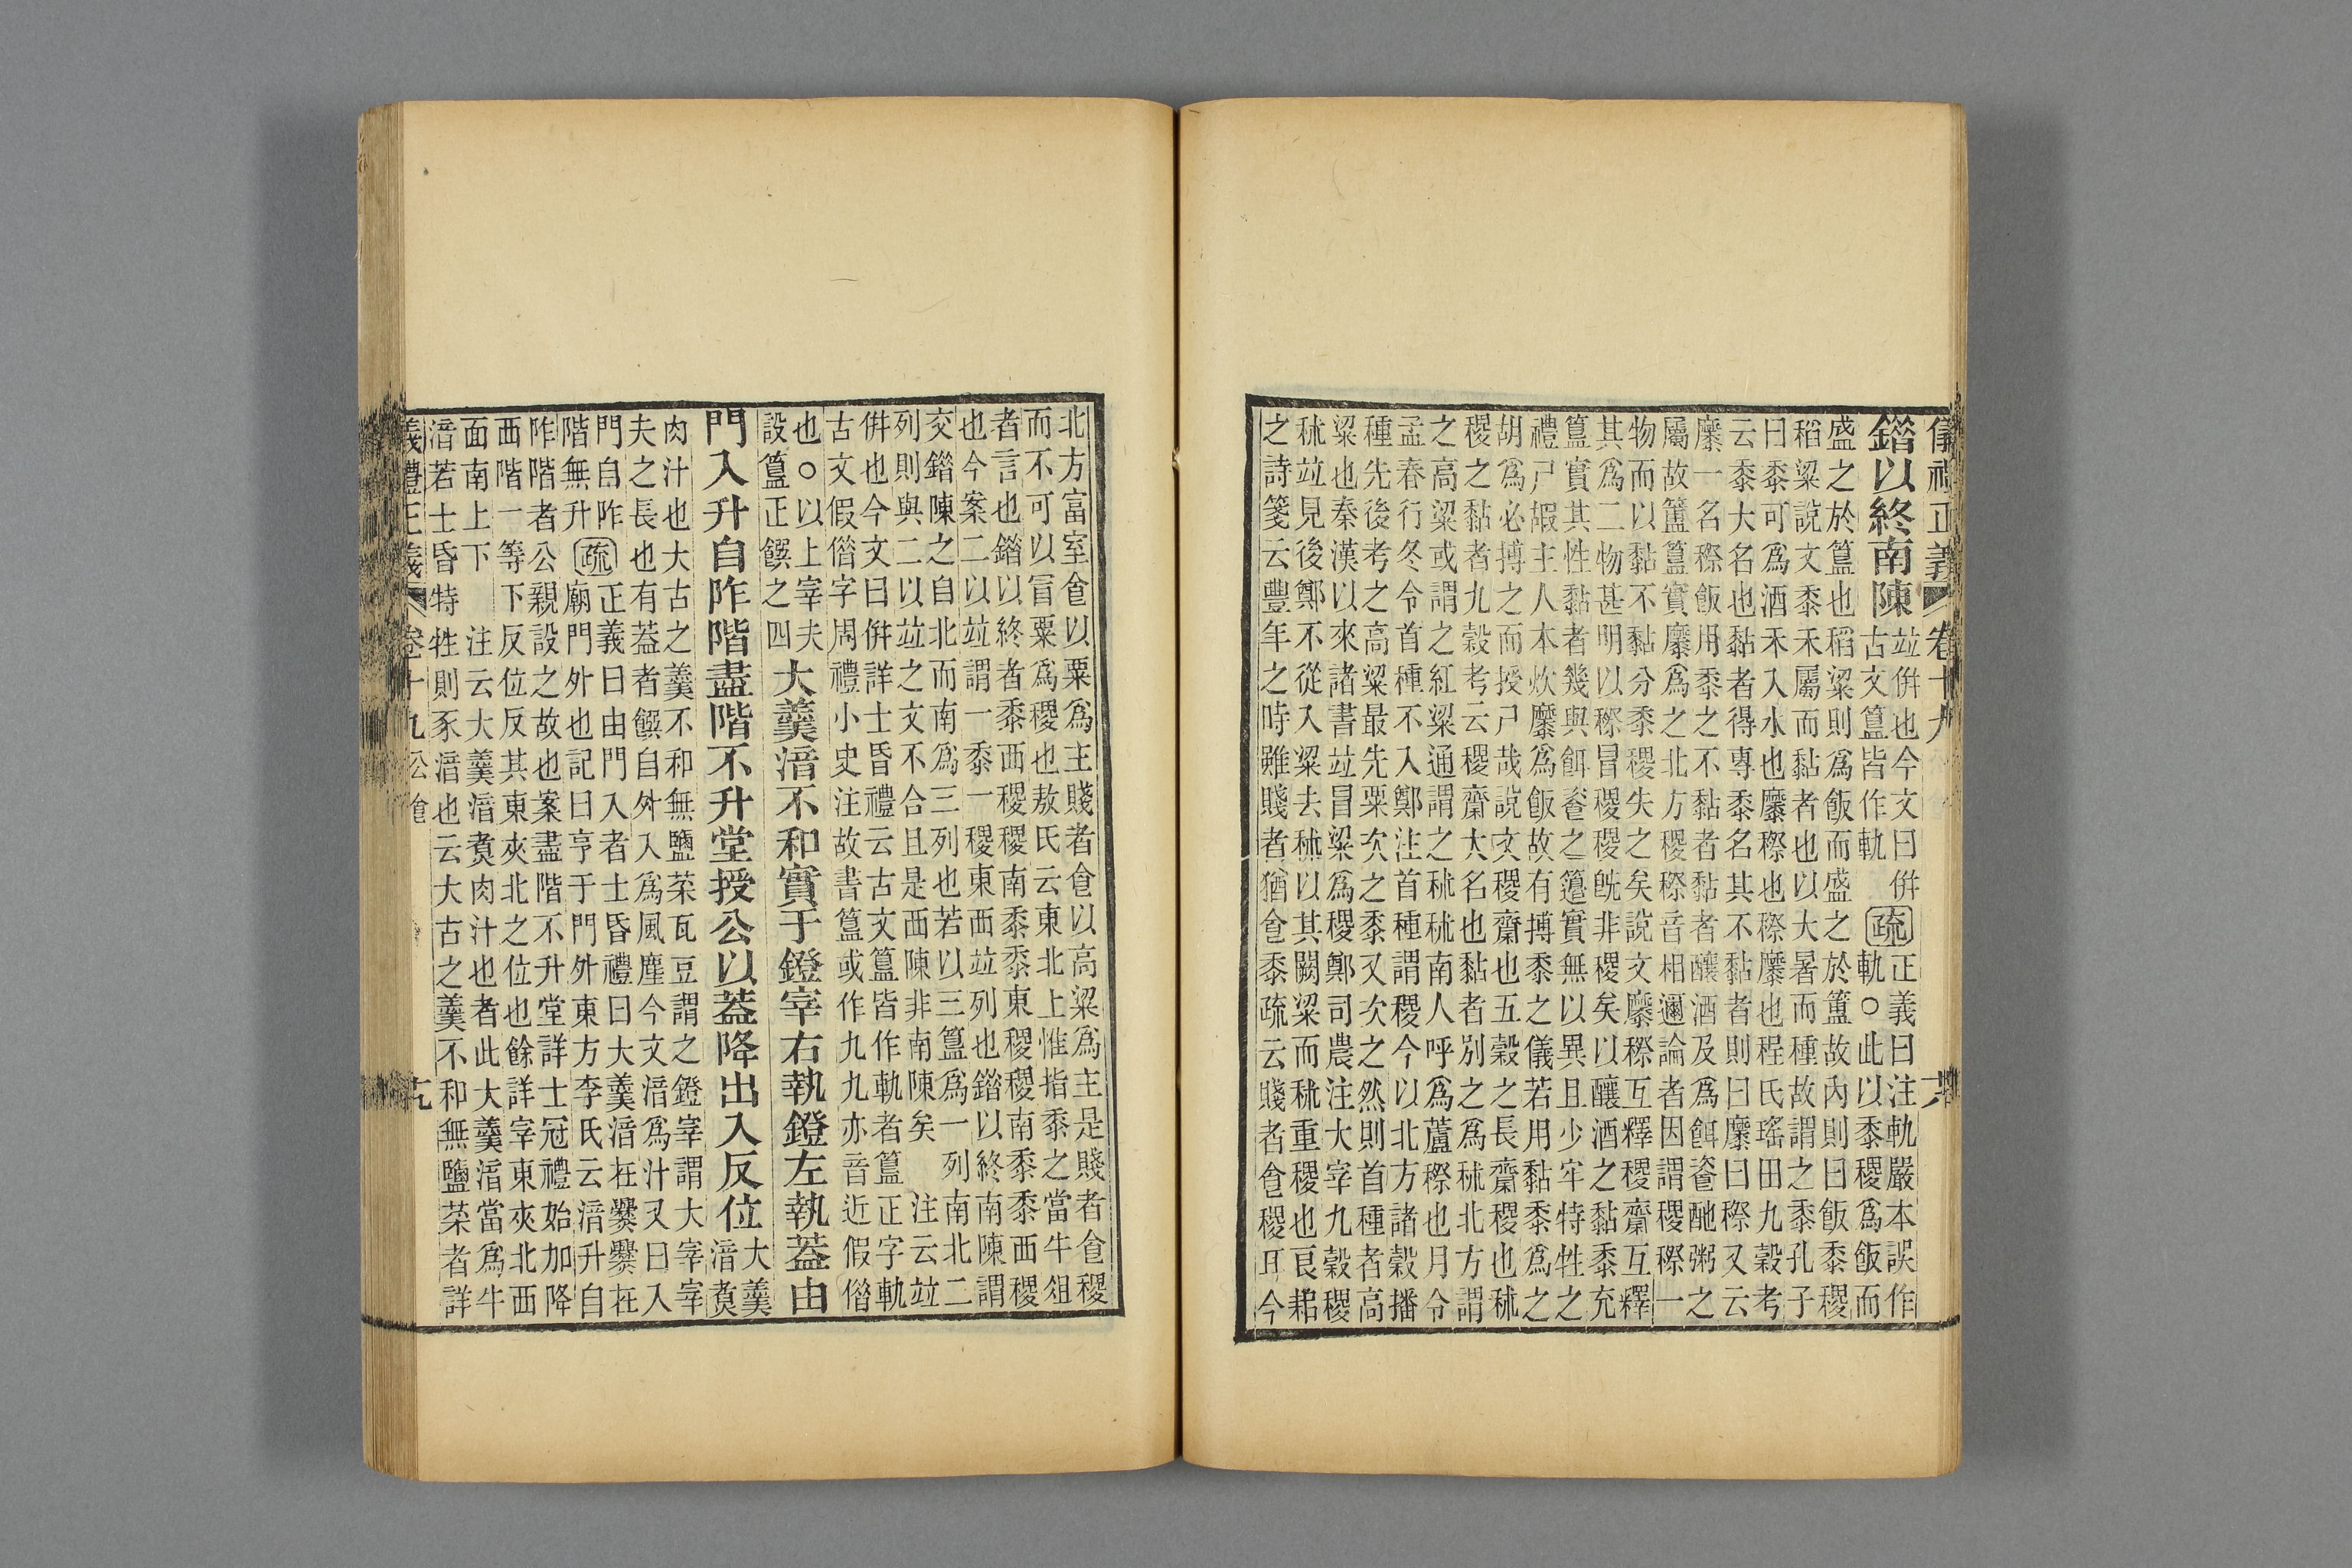 儀禮正義 卷十九 六
錯以終南陳
竝倂也今文曰倂
古文簋皆作軌
疏
正義曰注軌嚴本誤作
軌○此以黍稷爲飯而
盛之於簋也稻粱則爲飯而盛之於簠故內則曰飯黍稷
稻粱說文黍禾屬而黏者也以大暑而種故謂之黍孔子
曰黍可爲酒禾入水也穈穄也穄穈也程氏瑤田九穀考
云黍大名也黏者得專黍名其不黏者則曰穈曰穄又云
穈一名穄飯用黍之不黏者黏者釀酒及爲餌餈酏粥之
屬故簠簋實穈爲之北方稷穄音相邇論者因謂稷穄一
物而以黏不黏分黍稷失之矣說文穈穄互釋稷齋互釋
其爲二物甚明以穄冒稷稷旣非稷矣以釀酒之黏黍充
簋實其性黏者幾與餌餈之籩實無以異且少牢特牲之
禮尸嘏主人本炊穈爲飯故有搏黍之儀若用黏黍爲之
胡爲必搏之而授尸哉說文稷齋也五穀之長齋稷也秫
稷之黏者九穀考云稷齋大名也黏者別之爲秫北方謂
之高粱或謂之紅粱通謂之秫秫南人呼爲蘆穄也月令
孟春行冬令首種不入鄭注首種謂稷今以北方諸穀播
種先後考之高粱最先粟次之黍又次之然則首種者高
粱也秦漢以來諸書竝冒粱爲稷鄭司農注大宰九穀稷
秫竝見後鄭不從入粱去秫以其闕粱而秫重稷也良耜
之詩箋云豐年之時雖賤者猶食黍疏云賤者食稷耳今
北方富室食以粟爲主賤者食以高粱爲主是賤者食稷
而不可以冒粟爲稷也敖氏云東北上惟指黍之當牛俎
者言也錯以終者黍西稷稷南黍黍東稷稷南黍黍西稷
也今案二以竝謂一黍一稷東西竝列也錯以終南陳謂
交錯陳之自北而南爲三列也若以三簋爲一列南北二
列則與二以竝之文不合且是西陳非南陳矣 注云竝
倂也今文曰倂詳士昏禮云古文簋皆作軌者簋正字軌
古文假借字周禮小史注故書簋或作九九亦音近假借
也○以上宰夫
設簋正饌之四
大羹湆不和實于鐙宰右執鐙左執蓋由
門入升自阼階盡階不升堂授公以蓋降出入反位
大羹
湆煑
肉汁也大古之羹不和無鹽菜瓦豆謂之鐙宰謂大宰宰
夫之長也有蓋者饌自外入爲風塵今文湆爲汁又曰入
門自阼
階無升
疏
正義曰由門入者士昏禮曰大羹湆在爨爨在
廟門外也記曰亨于門外東方李氏云湆升自
阼階者公親設之故也案盡階不升堂詳士冠禮始加降
西階一等下反位反其東夾北之位也餘詳宰東夾北西
面南上下 注云大羹湆煑肉汁也者此大羹湆當爲牛
湆若士昏特牲則豕湆也云大古之羹不和無鹽菜者詳
義禮正義 卷十九 公食